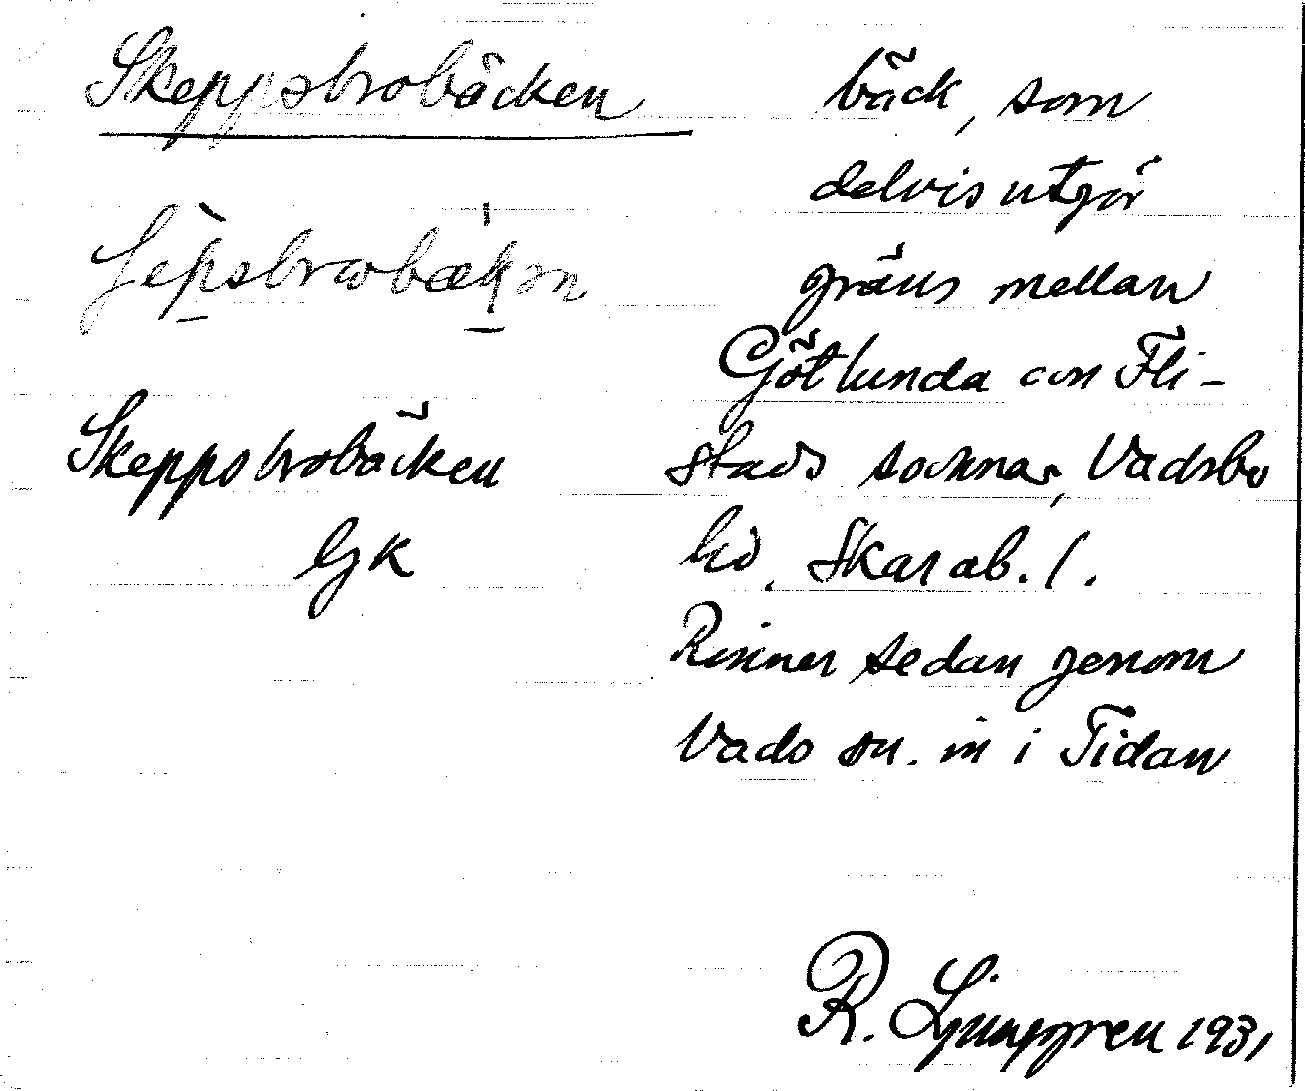 Skeppsbrobäcken
Skeppsbrobäcken
GK
bäck, som
delvis utgör
gräns mellan
Götlunda och Fli-
stads socknar, Vadsbo
hd, Skarab. l.
Rinner sedan genom
Vads sn. in i Tidan
R. Ljunggren 1931